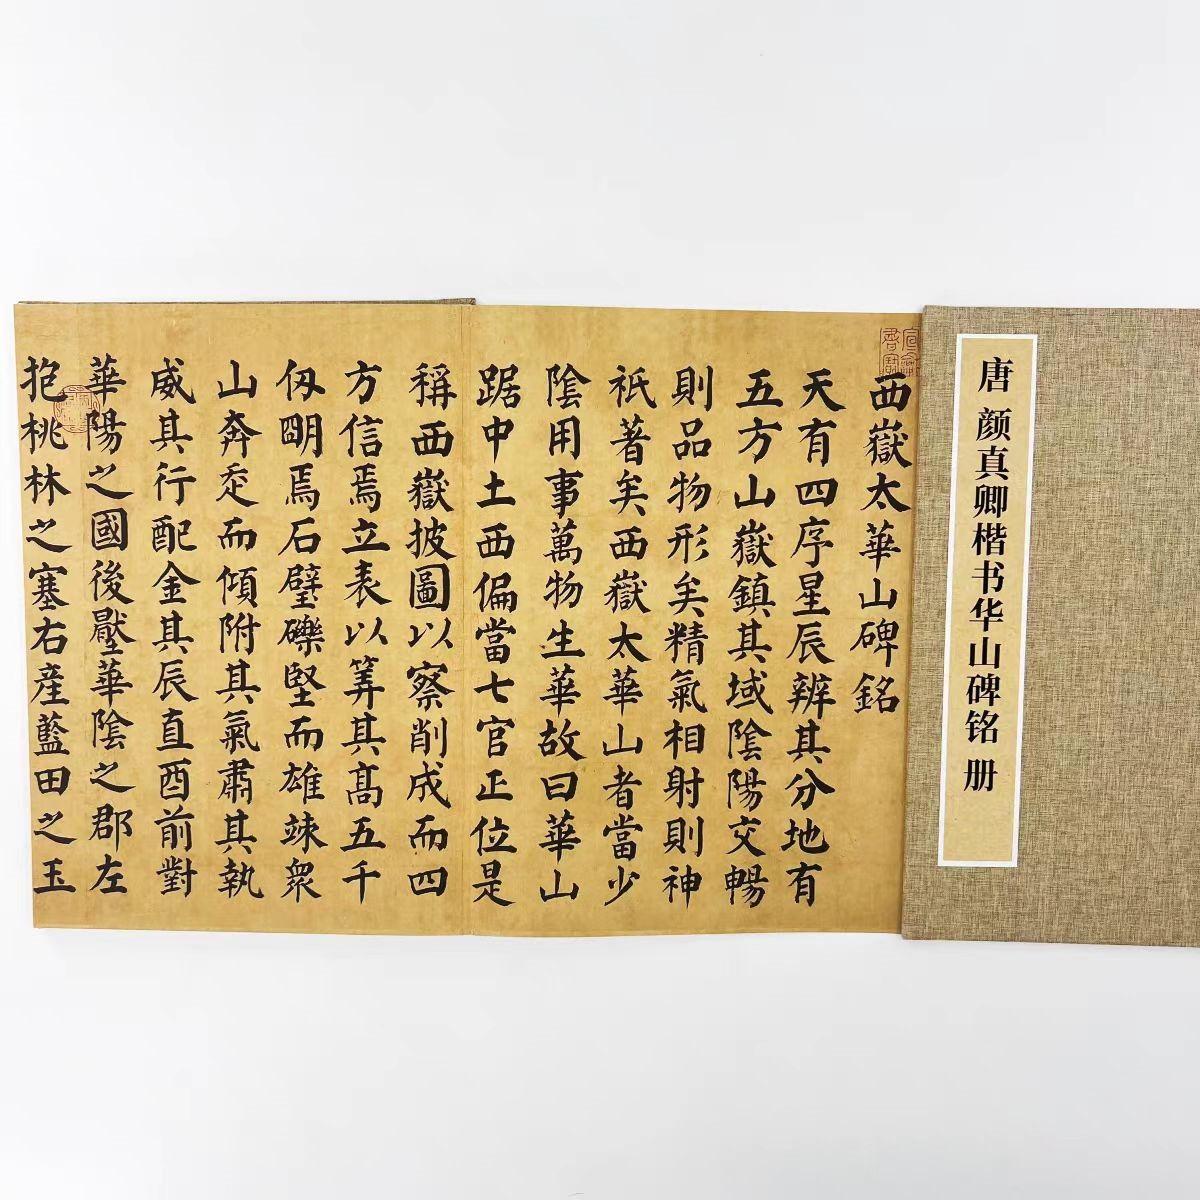 唐 颜真卿楷书华山碑铭 册
西嶽太華山碑銘
天有四序星辰辨其分地有
五方山嶽鎮其域陰陽交暢
則品物形矣精氣相射則神
祇著矣西嶽太華山者當少
陰用事萬物生華故曰華山
踞中土西偏當七官正位是
稱西嶽披圖以察削成而四
方信焉立表以筭其髙五千
仭明焉石壁礫堅而雄竦衆
山奔走而傾附其氣肅其執
威其行配金其辰直酉前對
華陽之國後壓華陰之郡左
抱桃林之塞右産藍田之玉